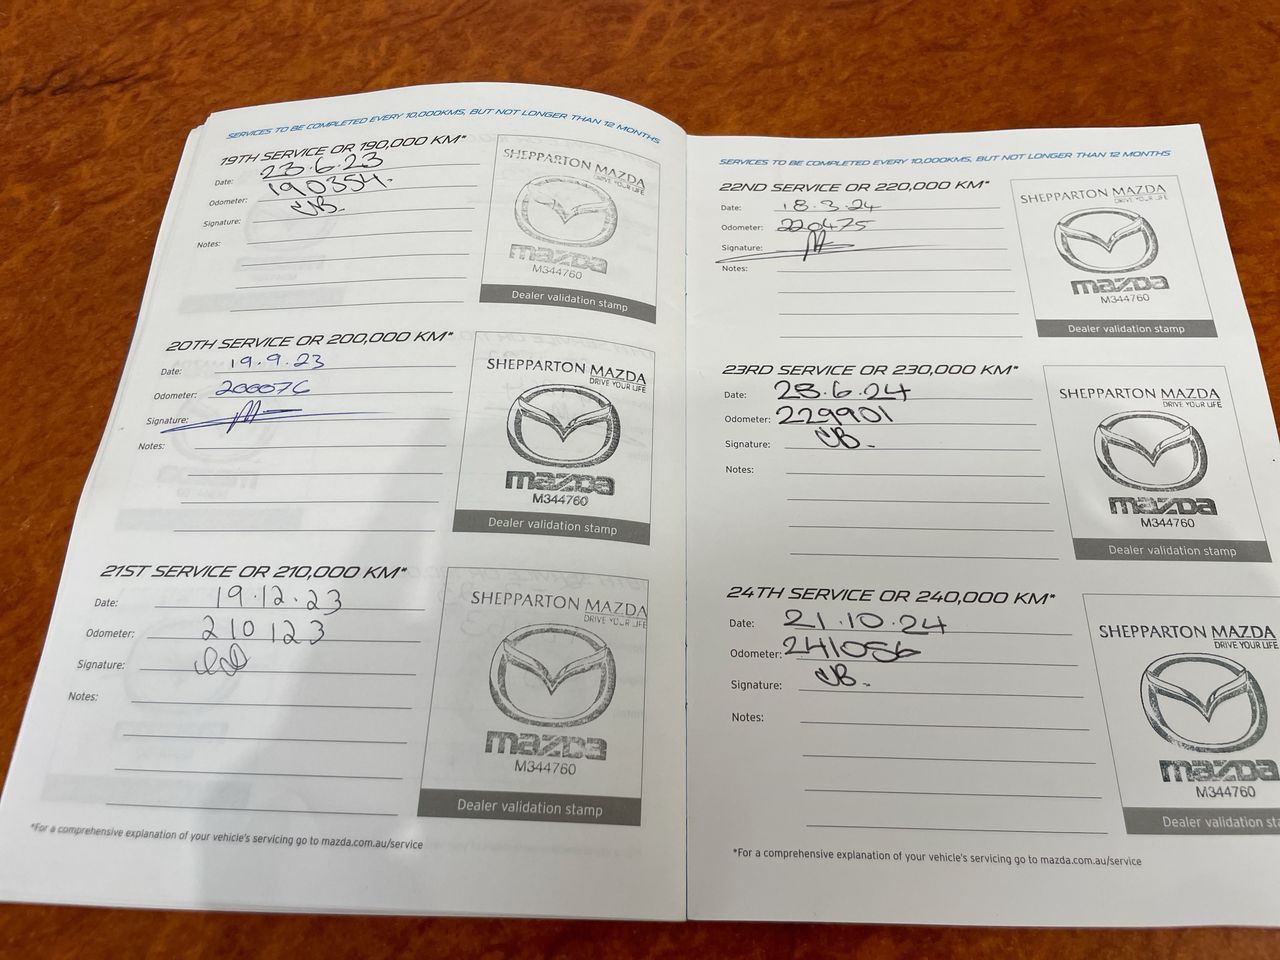 SERVICES TO BE COMPLETED EVERY 10,000KMS, BUT NOT LONGER THAN 12 MONTHS
19TH SERVICE OR 190,000 KM*
Date: 23.6.23
Odometer: 190354.
Signature: CB.
Notes:
SHEPPARTON MAZDA
DRIVE YOUR LIFE
mazda
M344760
Dealer validation stamp
20TH SERVICE OR 200,000 KM*
Date: 19.9.23
Odometer: 200076
Signature:
Notes:
SHEPPARTON MAZDA
DRIVE YOUR LIFE
mazda
M344760
Dealer validation stamp
21ST SERVICE OR 210,000 KM*
Date: 19.12.23
Odometer: 210123
Signature:
Notes:
SHEPPARTON MAZDA
DRIVE YOUR LIFE
mazda
M344760
Dealer validation stamp
*For a comprehensive explanation of your vehicle's servicing go to mazda.com.au/service
SERVICES TO BE COMPLETED EVERY 10,000KMS, BUT NOT LONGER THAN 12 MONTHS
22ND SERVICE OR 220,000 KM*
Date: 18.3.24
Odometer: 220475
Signature:
Notes:
SHEPPARTON MAZDA
DRIVE YOUR LIFE
mazda
M344760
Dealer validation stamp
23RD SERVICE OR 230,000 KM*
Date: 28.6.24
Odometer: 229901
Signature: CB.
Notes:
SHEPPARTON MAZDA
DRIVE YOUR LIFE
mazda
M344760
Dealer validation stamp
24TH SERVICE OR 240,000 KM*
Date: 21.10.24
Odometer: 241056
Signature: CB.
Notes:
SHEPPARTON MAZDA
DRIVE YOUR LIFE
mazda
M344760
Dealer validation sta
*For a comprehensive explanation of your vehicle's servicing go to mazda.com.au/service